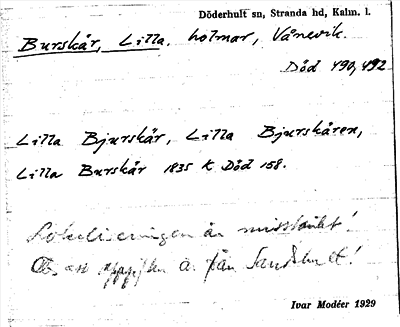 Döderhult sn, Stranda hd, Kalm. l.
Burskär, Lilla, holmar, Vånevik.
Död 490, 492
Lilla Bjurskär, Lilla Bjurskären,
Lilla Burskär 1835 K Död 158.
Lokaliseringen är misstänkt!
Obs. att uppgiften är från Sandhult!
Ivar Modéer 1929